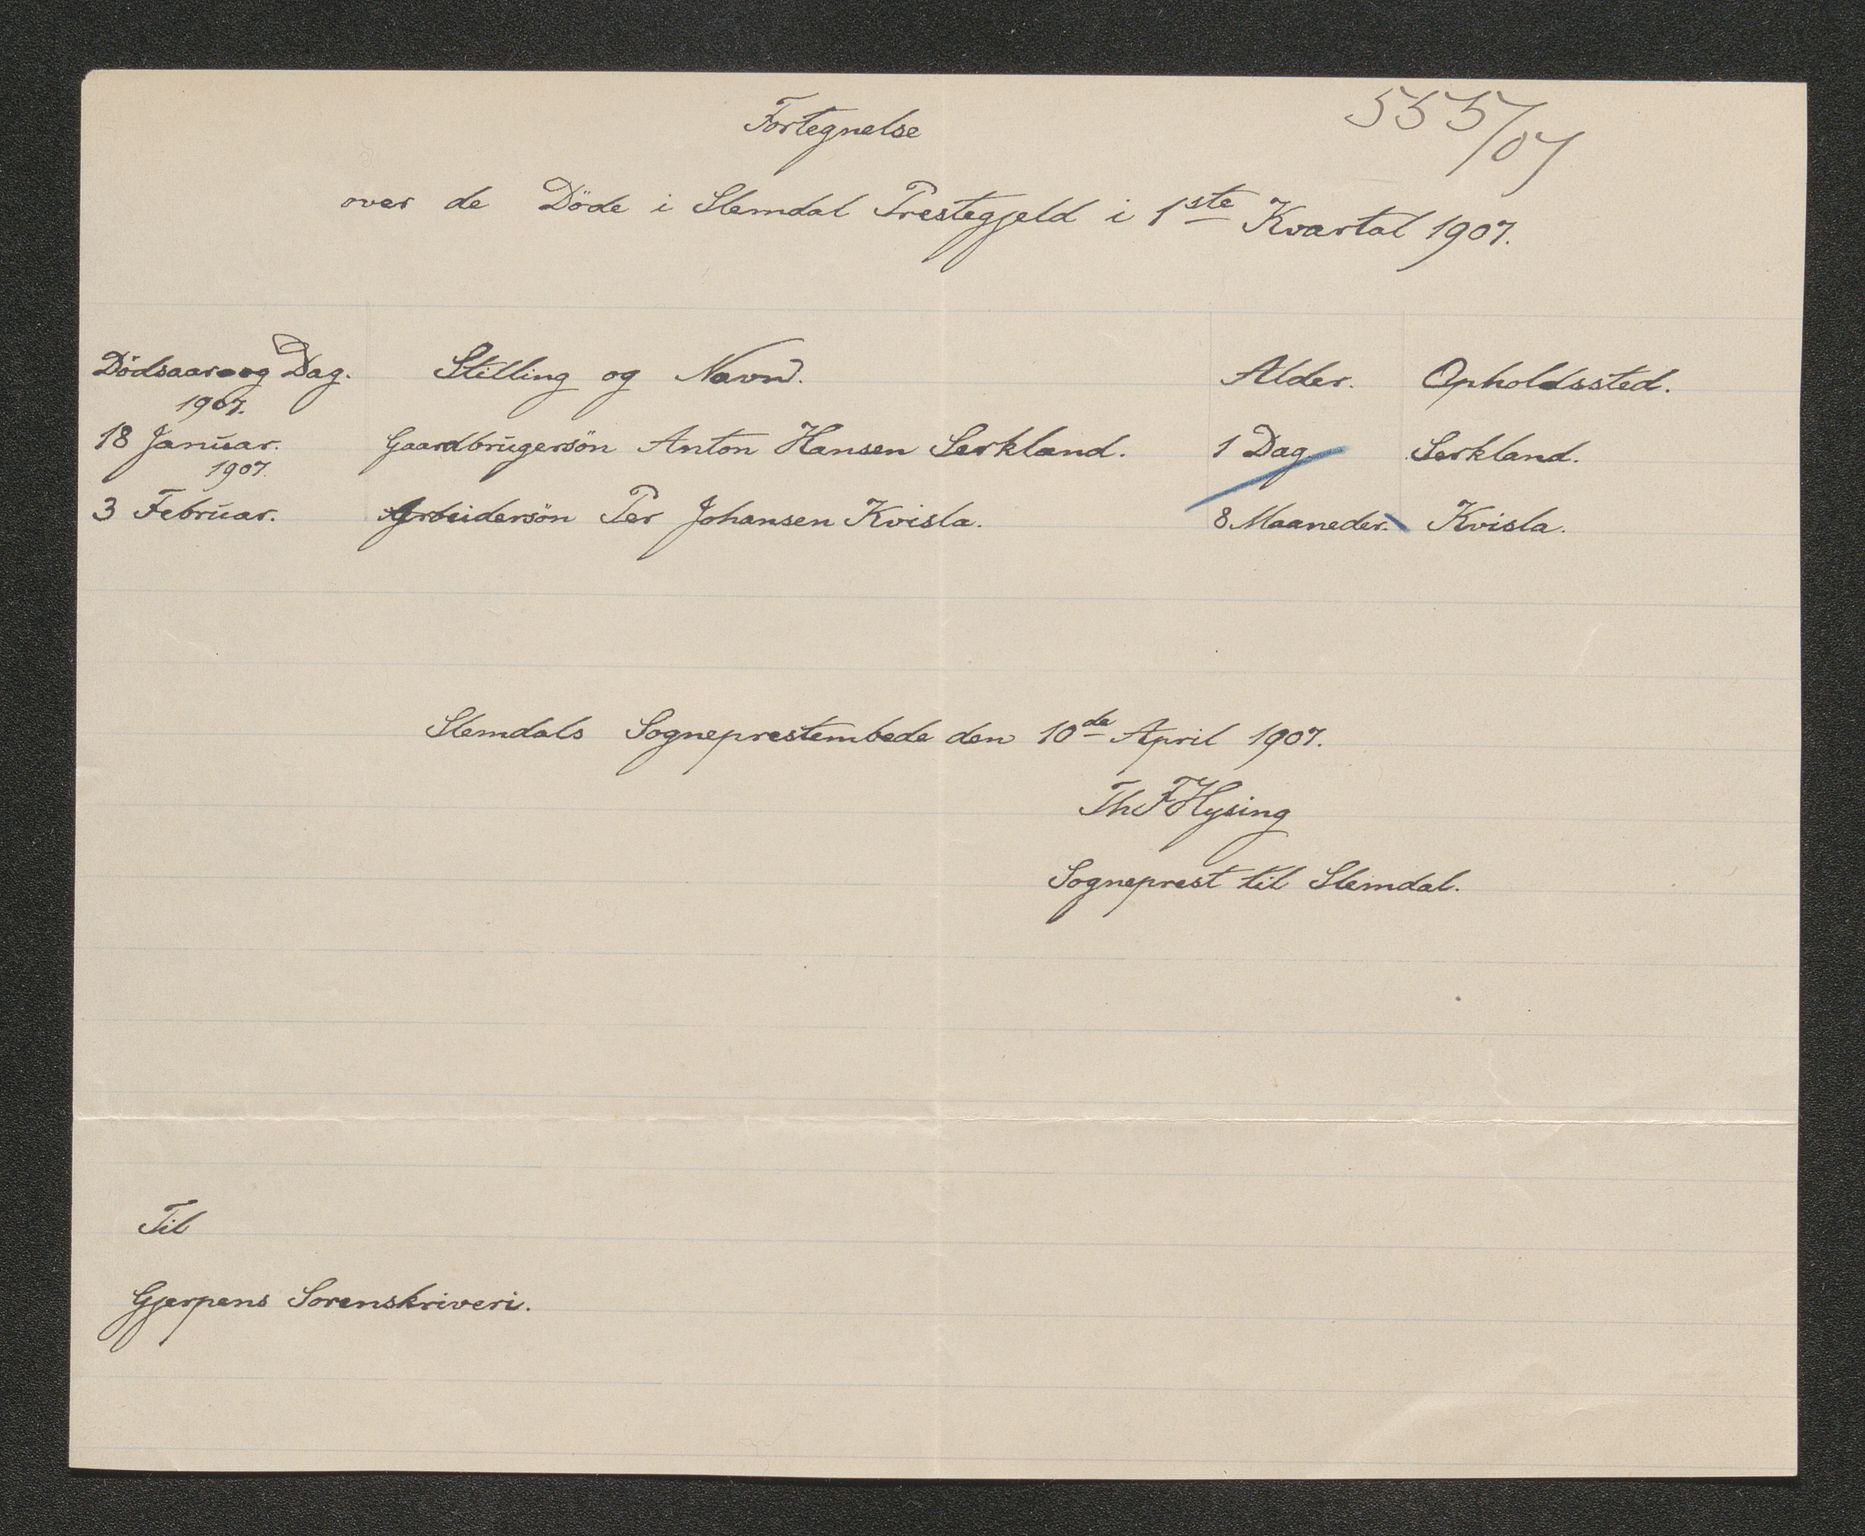 555/07
Fortegnelse
over de Döde i Slemdal Prestegjeld i 1ste Kvartal 1907.
Dödsaar og Dag. Stilling og Navn. Alder. Opholdssted.
1907.
18 Januar. Gaardbrugersön Anton Hansen Serkland. 1 Dag Serkland.
1907.
3 Februar. Arbeidersön Per Johansen Kvisla. 8 Maaneder. Kvisla.
Slemdals Sogneprestembede den 10de April 1907.
Th F Hysing
Sogneprest til Slemdal.
Til
Gjerpens Sorenskriveri.